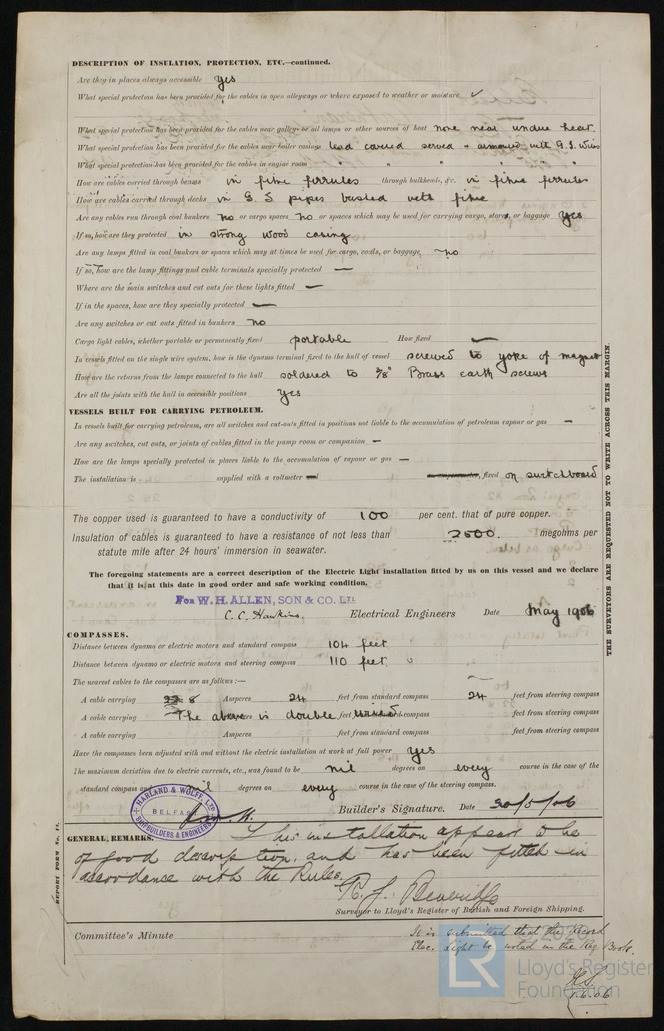 DESCRIPTION OF INSULATION, PROTECTION, ETC.—continued.
Are they in places always accessible yes
What special protection has been provided for the cables in open alleyways or where exposed to weather or moisture ✓
What special protection has been provided for the cables near galleys or oil lamps or other sources of heat none near undue heat.
What special protection has been provided for the cables near boiler casings lead covered served & armoured with G.I. Wires
What special protection has been provided for the cables in engine room " " " "
How are cables carried through beams in fibre ferrules through bulkheads, &c. in fibre ferrules
How are cables carried through decks in G. I. pipes bushed with fibre
Are any cables run through coal bunkers no or cargo spaces no or spaces which may be used for carrying cargo, stores, or baggage yes
If so, how are they protected in strong wood casing
Are any lamps fitted in coal bunkers or spaces which may at times be used for cargo, coals, or baggage no
If so, how are the lamp fittings and cable terminals specially protected —
Where are the main switches and cut outs for these lights fitted —
If in the spaces, how are they specially protected —
Are any switches or cut outs fitted in bunkers no
Cargo light cables, whether portable or permanently fixed portable How fixed —
In vessels fitted on the single wire system, how is the dynamo terminal fixed to the hull of vessel screwed to yoke of magnet
How are the returns from the lamps connected to the hull soldered to 3/8" Brass earth screws
Are all the joints with the hull in accessible positions Yes
VESSELS BUILT FOR CARRYING PETROLEUM.
In vessels built for carrying petroleum, are all switches and cut-outs fitted in positions not liable to the accumulation of petroleum vapour or gas —
Are any switches, cut outs, or joints of cables fitted in the pump room or companion —
How are the lamps specially protected in places liable to the accumulation of vapour or gas —
The installation is supplied with a voltmeter , fixed on switchboard
The copper used is guaranteed to have a conductivity of 100 per cent. that of pure copper.
Insulation of cables is guaranteed to have a resistance of not less than 2500. megohms per
statute mile after 24 hours' immersion in seawater.
The foregoing statements are a correct description of the Electric Light installation fitted by us on this vessel and we declare
that it is at this date in good order and safe working condition.
For W. H. ALLEN, SON & CO. LTD
C. C. Hawkins. Electrical Engineers Date May 1906
COMPASSES.
Distance between dynamo or electric motors and standard compass 104 feet
Distance between dynamo or electric motors and steering compass 110 feet.
The nearest cables to the compasses are as follows:—
A cable carrying 8 Amperes 24 feet from standard compass 24 feet from steering compass
A cable carrying The above is double wired feet from standard compass feet from steering compass
A cable carrying Amperes feet from standard compass feet from steering compass
Have the compasses been adjusted with and without the electric installation at work at full power yes
The maximum deviation due to electric currents, etc., was found to be nil degrees on every course in the case of the
standard compass and nil degrees on every course in the case of the steering compass.
HARLAND & WOLFF, LTD
BELFAST
SHIPBUILDERS & ENGINEERS
Builder's Signature. Date 30/5/06
GENERAL REMARKS. This installation appears to be
of good description, and has been fitted in
accordance with the Rules.
R. J. Beveridge
Surveyor to Lloyd's Register of British and Foreign Shipping.
Committee's Minute
It is submitted that the Record
Elec. Light be noted in the Reg. Book.
1.6.06
REPORT FORM No. 11.
THE SURVEYORS ARE REQUESTED NOT TO WRITE ACROSS THIS MARGIN.
LR
Lloyd's Register
Foundation